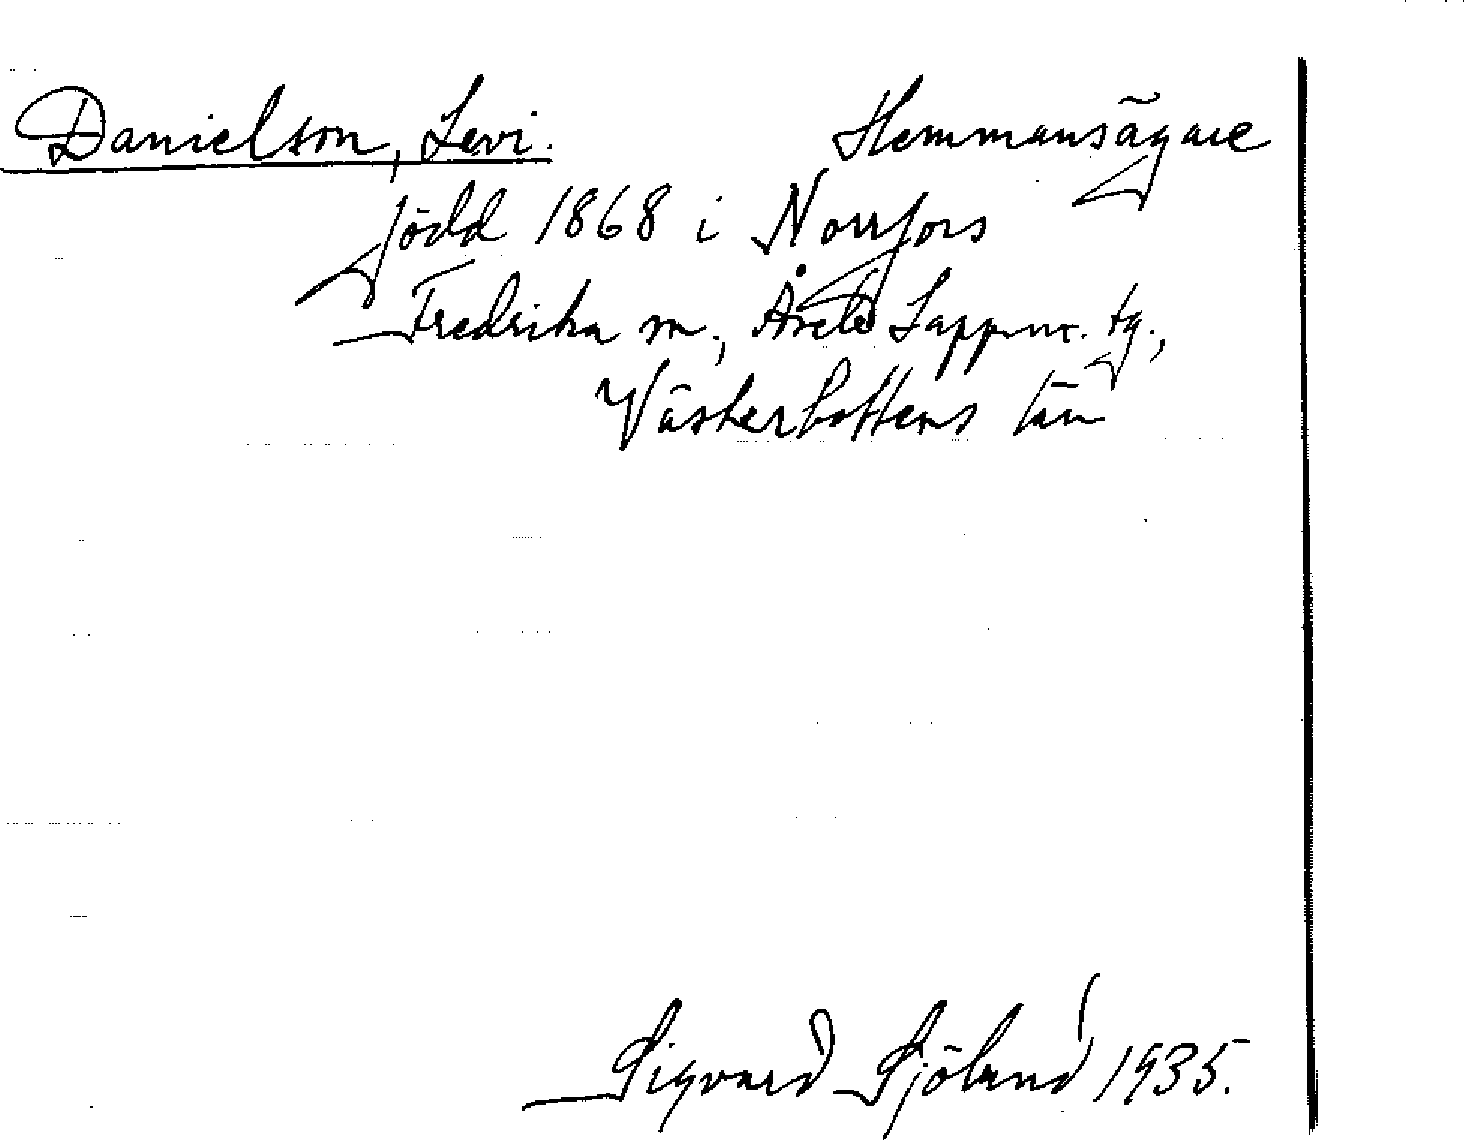 Danielson, Levi. Hemmansägare
född 1868 i Norrfors
Fredrika sn., Åsele Lappm. tg.,
Västerbottens län
Sigvard Sjölund 1935.